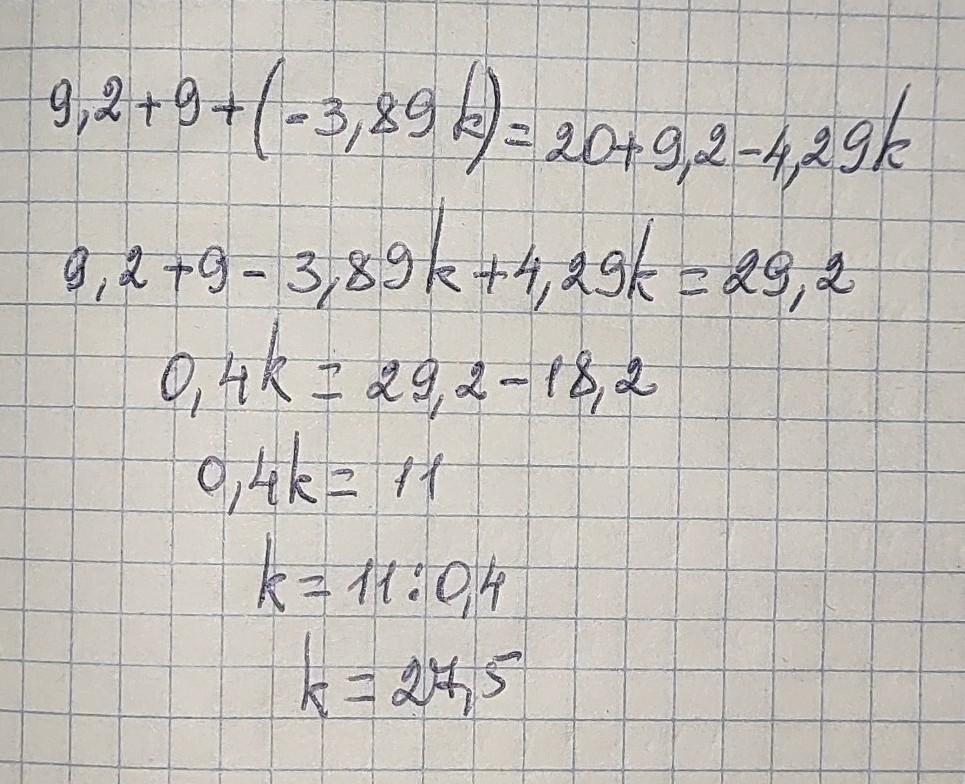 9,2+9+(-3,89k)=20+9,2-4,29k
9,2+9-3,89k+4,29k=29,2
0,4k=29,2-18,2
0,4k=11
k=11:0,4
k=27,5